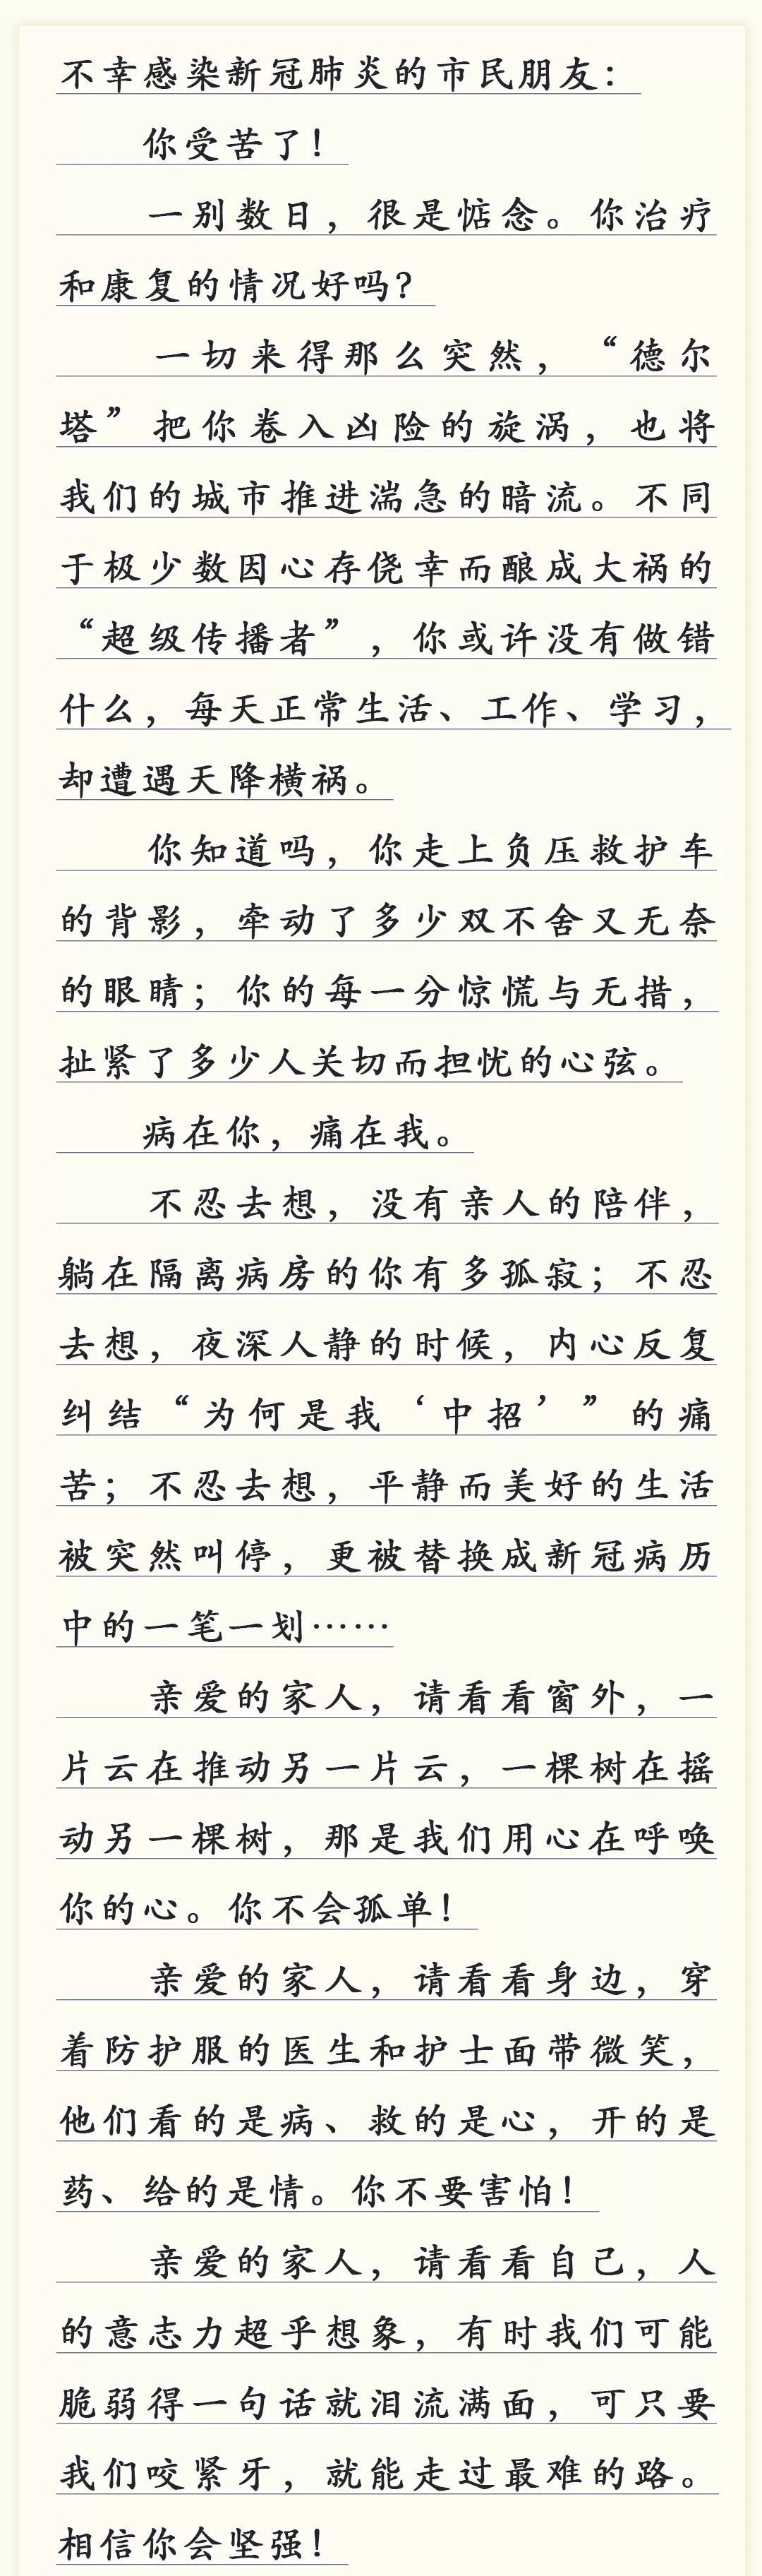 不幸感染新冠肺炎的市民朋友：
你受苦了！
一别数日，很是惦念。你治疗
和康复的情况好吗？
一切来得那么突然，“德尔
塔”把你卷入凶险的旋涡，也将
我们的城市推进湍急的暗流。不同
于极少数因心存侥幸而酿成大祸的
“超级传播者”，你或许没有做错
什么，每天正常生活、工作、学习，
却遭遇天降横祸。
你知道吗，你走上负压救护车
的背影，牵动了多少双不舍又无奈
的眼睛；你的每一分惊慌与无措，
扯紧了多少人关切而担忧的心弦。
病在你，痛在我。
不忍去想，没有亲人的陪伴，
躺在隔离病房的你有多孤寂；不忍
去想，夜深人静的时候，内心反复
纠结“为何是我‘中招’”的痛
苦；不忍去想，平静而美好的生活
被突然叫停，更被替换成新冠病历
中的一笔一划……
亲爱的家人，请看看窗外，一
片云在推动另一片云，一棵树在摇
动另一棵树，那是我们用心在呼唤
你的心。你不会孤单！
亲爱的家人，请看看身边，穿
着防护服的医生和护士面带微笑，
他们看的是病、救的是心，开的是
药、给的是情。你不要害怕！
亲爱的家人，请看看自己，人
的意志力超乎想象，有时我们可能
脆弱得一句话就泪流满面，可只要
我们咬紧牙，就能走过最难的路。
相信你会坚强！